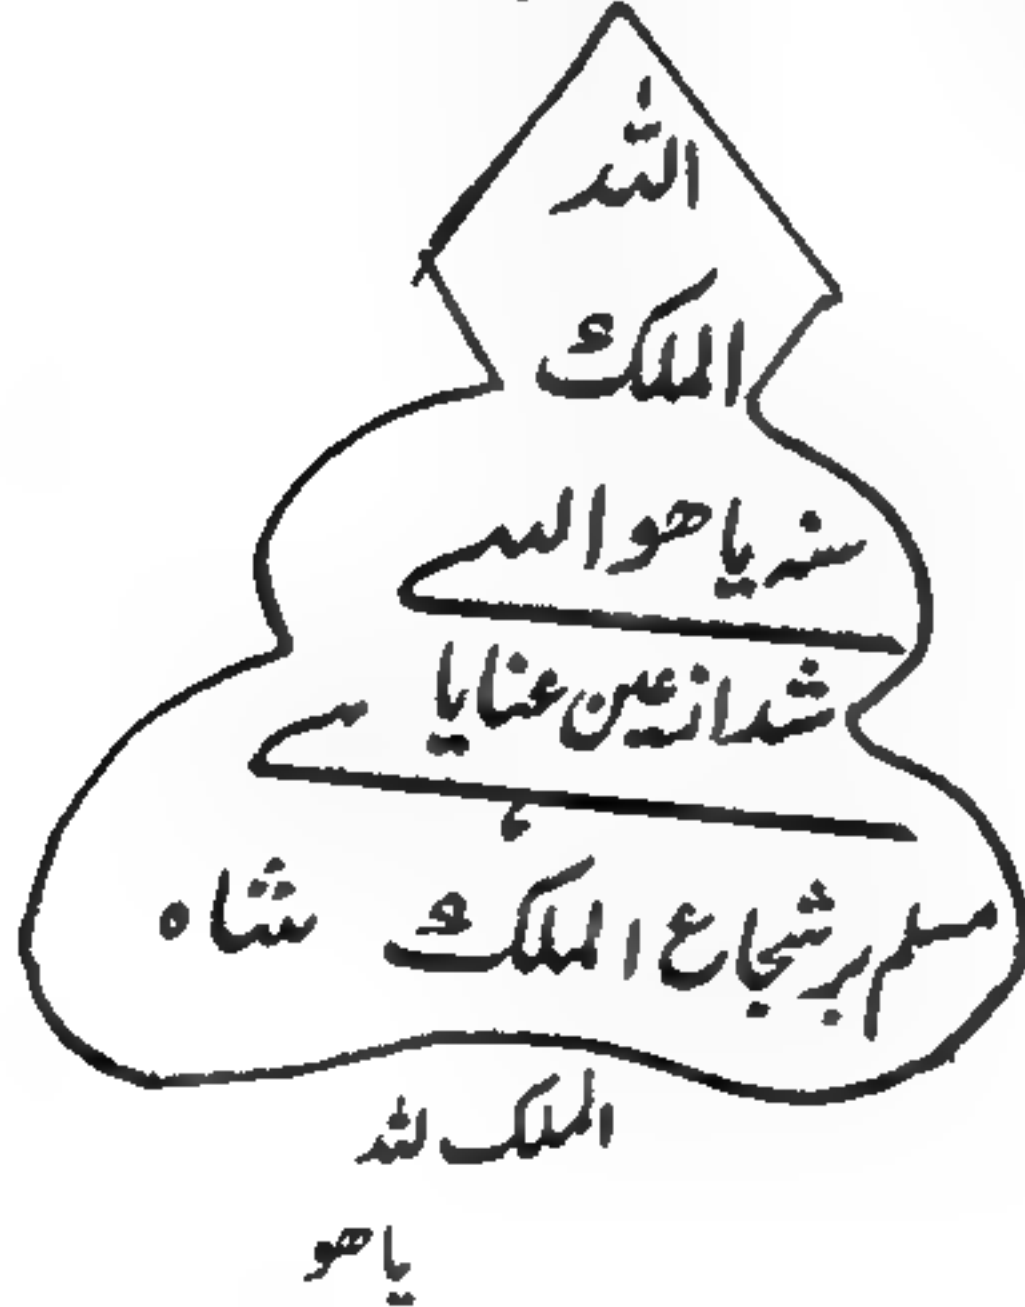 اللہ
الملک
سنہ یا ھو
شد از عین عنایا
مسلم بر شجاع الملک شاہ
الملک للہ
یا ھو